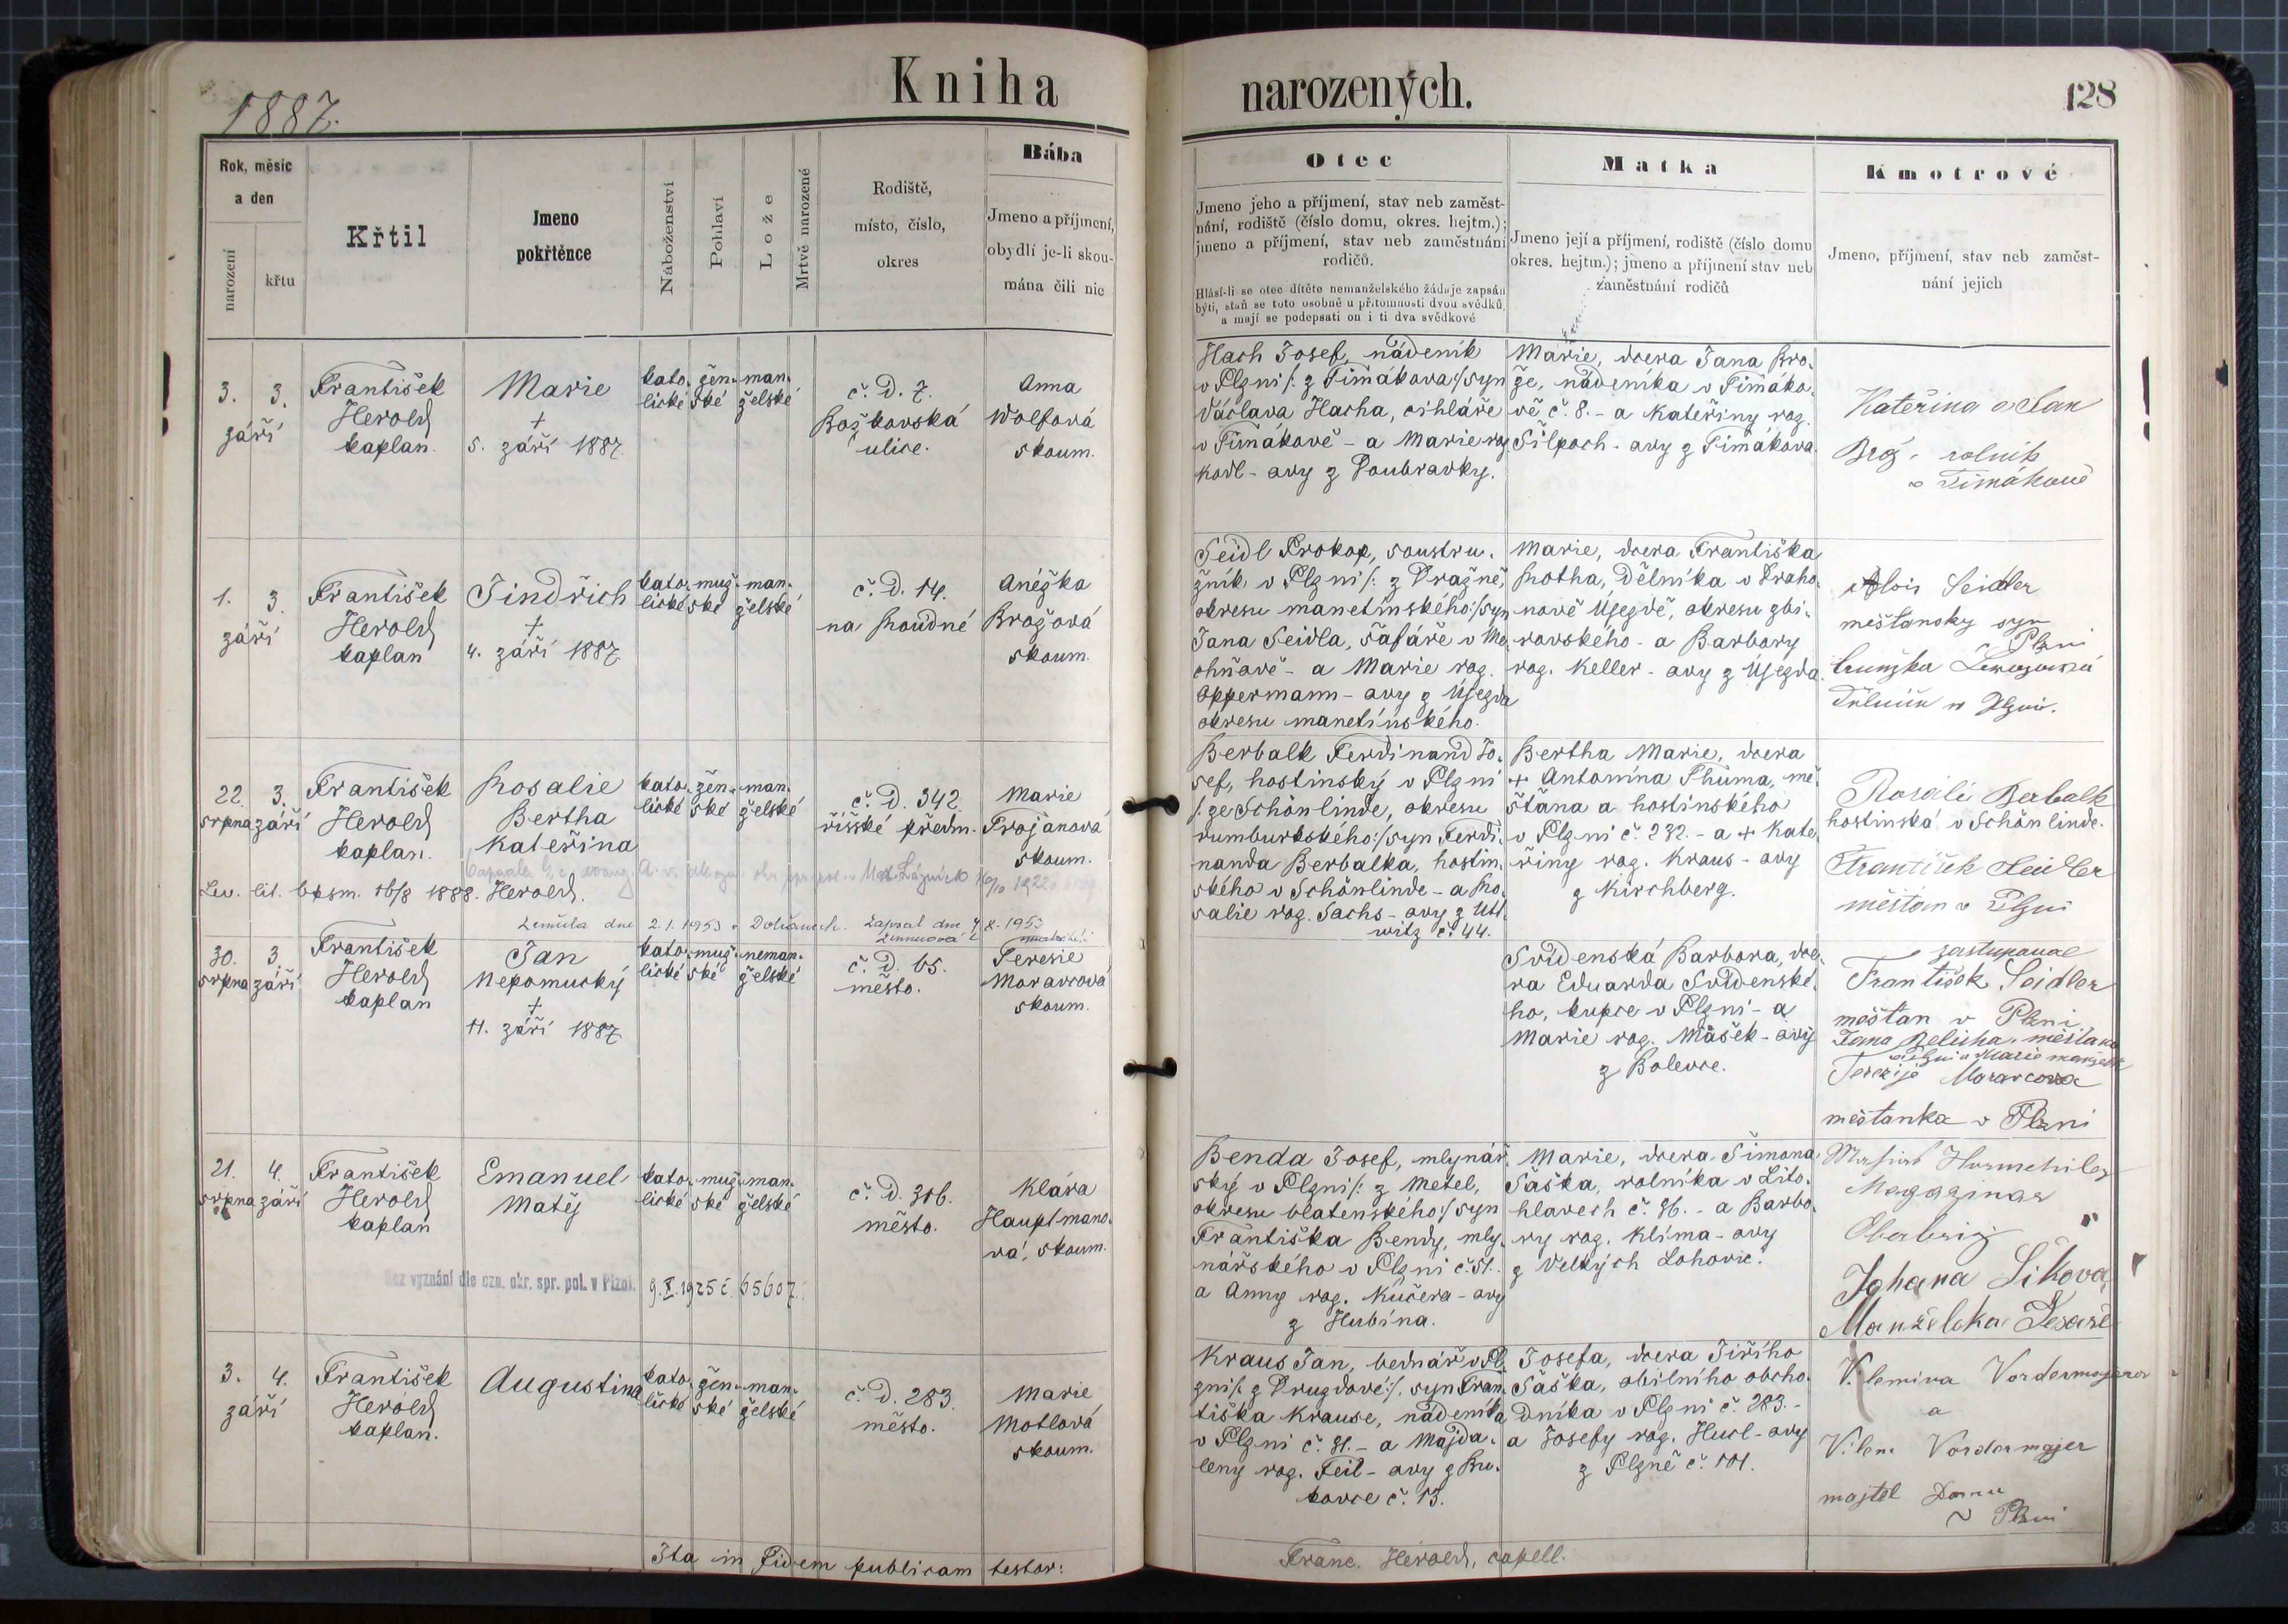 1887.
Kniha
narozených.
128
Rok, měsíc
a den
narození
křtu
Křtil
Jmeno
pokřtěnce
Náboženství
Pohlaví
Lože
Mrtvě narozené
Rodiště,
místo, číslo,
okres
Bába
Jmeno a příjmení,
obydlí je-li skou-
mána čili nic
Otec
Jmeno jeho a příjmení, stav neb zaměst-
nání, rodiště (číslo domu, okres. hejtm.);
jmeno a příjmení, stav neb zaměstnání
rodičů.
Hlásí-li se otec dítěte nemanželského žádaje zapsán
býti, staň se toto osobně u přítomnosti dvou svědků,
a mají se podepsati on i ti dva svědkové
Matka
Jmeno její a příjmení, rodiště (číslo domu
okres. hejtm.); jmeno a příjmení stav neb
zaměstnání rodičů
Kmotrové
Jmeno, příjmení, stav neb zaměst-
nání jejich
3. 3.
září
František
Herold
kaplan.
Marie
+
5. září 1887.
kato- žen- man-
lické ské želské
č. d. 7.
Božkovská
ulice.
Anna
Wolfová
skoum.
Hach Josef, nádeník
v Plzni /: z Timákova :/ syn
Václava Hacha, cihláře
v Timákově - a Marie roz.
Kovl - ovy z Doubravky.
Marie, dcera Jana Bro-
že, nádeníka v Timáko-
vě č. 8. - a Kateřiny roz.
Šilpoch - ovy z Timákova.
Kateřina a Jan
Brož - rolník
v Timákově
1. 3.
září
František
Herold
kaplan
Jindřich
+
4. září 1887.
kato- muž- man-
lické ské želské
č. d. 14.
na Roudné
Anéžka
Brožová
skoum.
Seidl Prokop, soustru-
žník v Plzni /: z Dražně,
okresu manetínského :/ syn
Jana Seidla, šafáře v Mo-
ohňově - a Marie roz.
Oppermann - ovy z Újezda
okresu manetínského.
Marie, dcera Františka
Rotha, dělníka v Draho-
nově Újezdě, okresu zbi-
rovského - a Barbory
roz. Keller - ovy z Újezda.
Alois Seidler
mešťansky syn
Plzni
v Plzni.
22. 3.
srpna září
František
Herold
kaplan.
Rosalie
Bertha
Kateřina
kato- žen- man-
lické ské želské
č. d. 342.
říšské předm.
Marie
Trojanová
skoum.
Lev. lit. bpsm. 16/8 1888. Herold.
Zemřela dne 2.1.1953 v Dobřanech. Zapsal dne 4.8.1953
Berbalk Ferdinand Jo-
sef, hostinský v Plzni
/: ze Schönlinde, okresu
rumburkského :/ syn Ferdi-
nanda Berbalka, hostin-
ského v Schönlinde - a Ro-
salie roz. Sachs - ovy z Utt-
witz č. 44.
Bertha Marie, dcera
+ Antonína Thüma, mě-
šťana a hostinského
v Plzni č. 232. - a + Kate-
řiny roz. Kraus - ovy
z Kirchberg.
Rosalie Berbalk
hostinská v Schönlinde.
František Seidler
měšťan v Plzni
30. 3.
srpna září
František
Herold
kaplan
Jan
Nepomucký
+
11. září 1887.
kato- muž- neman-
lické ské želské
č. d. 65.
město.
Teresie
Moravcová
skoum.
Svídenská Barbora, dce-
ra Eduarda Svídenské-
ho, kupce v Plzni - a
Marie roz. Mašek - ovy
z Bolevce.
zastupoval
František Seidler
mešťan v Plzni
Jana Belicha, měšťana
v Plzni a Marie manželk
Terezije Moravcova
mešťanka v Plzni
21. 4.
srpna září
František
Herold
kaplan
Emanuel
Matěj
kato- muž- man-
lické ské želské
č. d. 306.
město.
Klára
Hauptmano-
vá, skoum.
Bez vyznání dle ozn. okr. spr. pol. v Plzni. 9.X.1925 č. 65607.
Benda Josef, mlynář-
ský v Plzni /: z Metel,
okresu blatenského :/ syn
Františka Bendy, mly-
nářského v Plzni č. 51. -
a Anny roz. Kučera - ovy
z Hubína.
Marie, dcera Šimona
Šaška, rolníka v Lito-
hlavech č. 86. - a Barbo-
ry roz. Klíma - ovy
z Velkých Lohovic.
Johana Šikova,
Manželka Tesaře
3. 4.
září
František
Herold
kaplan.
Augustina
kato- žen- man-
lické ské želské
č. d. 283.
město.
Marie
Motlová
skoum.
Kraus Jan, bednář v Pl-
zni /: z Druzdové :/, syn Fran-
tiška Krause, nádeníka
v Plzni č. 81. - a Majda-
leny roz. Feil - ovy z Bu-
kovce č. 13.
Josefa, dcera Jiřího
Šaška, obilního obcho-
dníka v Plzni č. 283. -
a Josefy roz. Hucl - ovy
z Plzně č. 101.
Vilemina Vordermajerov
a
Vilem Vordermajer
majtel Domu
v Plzni
Ita in Fidem publicam testor:
Franc. Herold, capell.